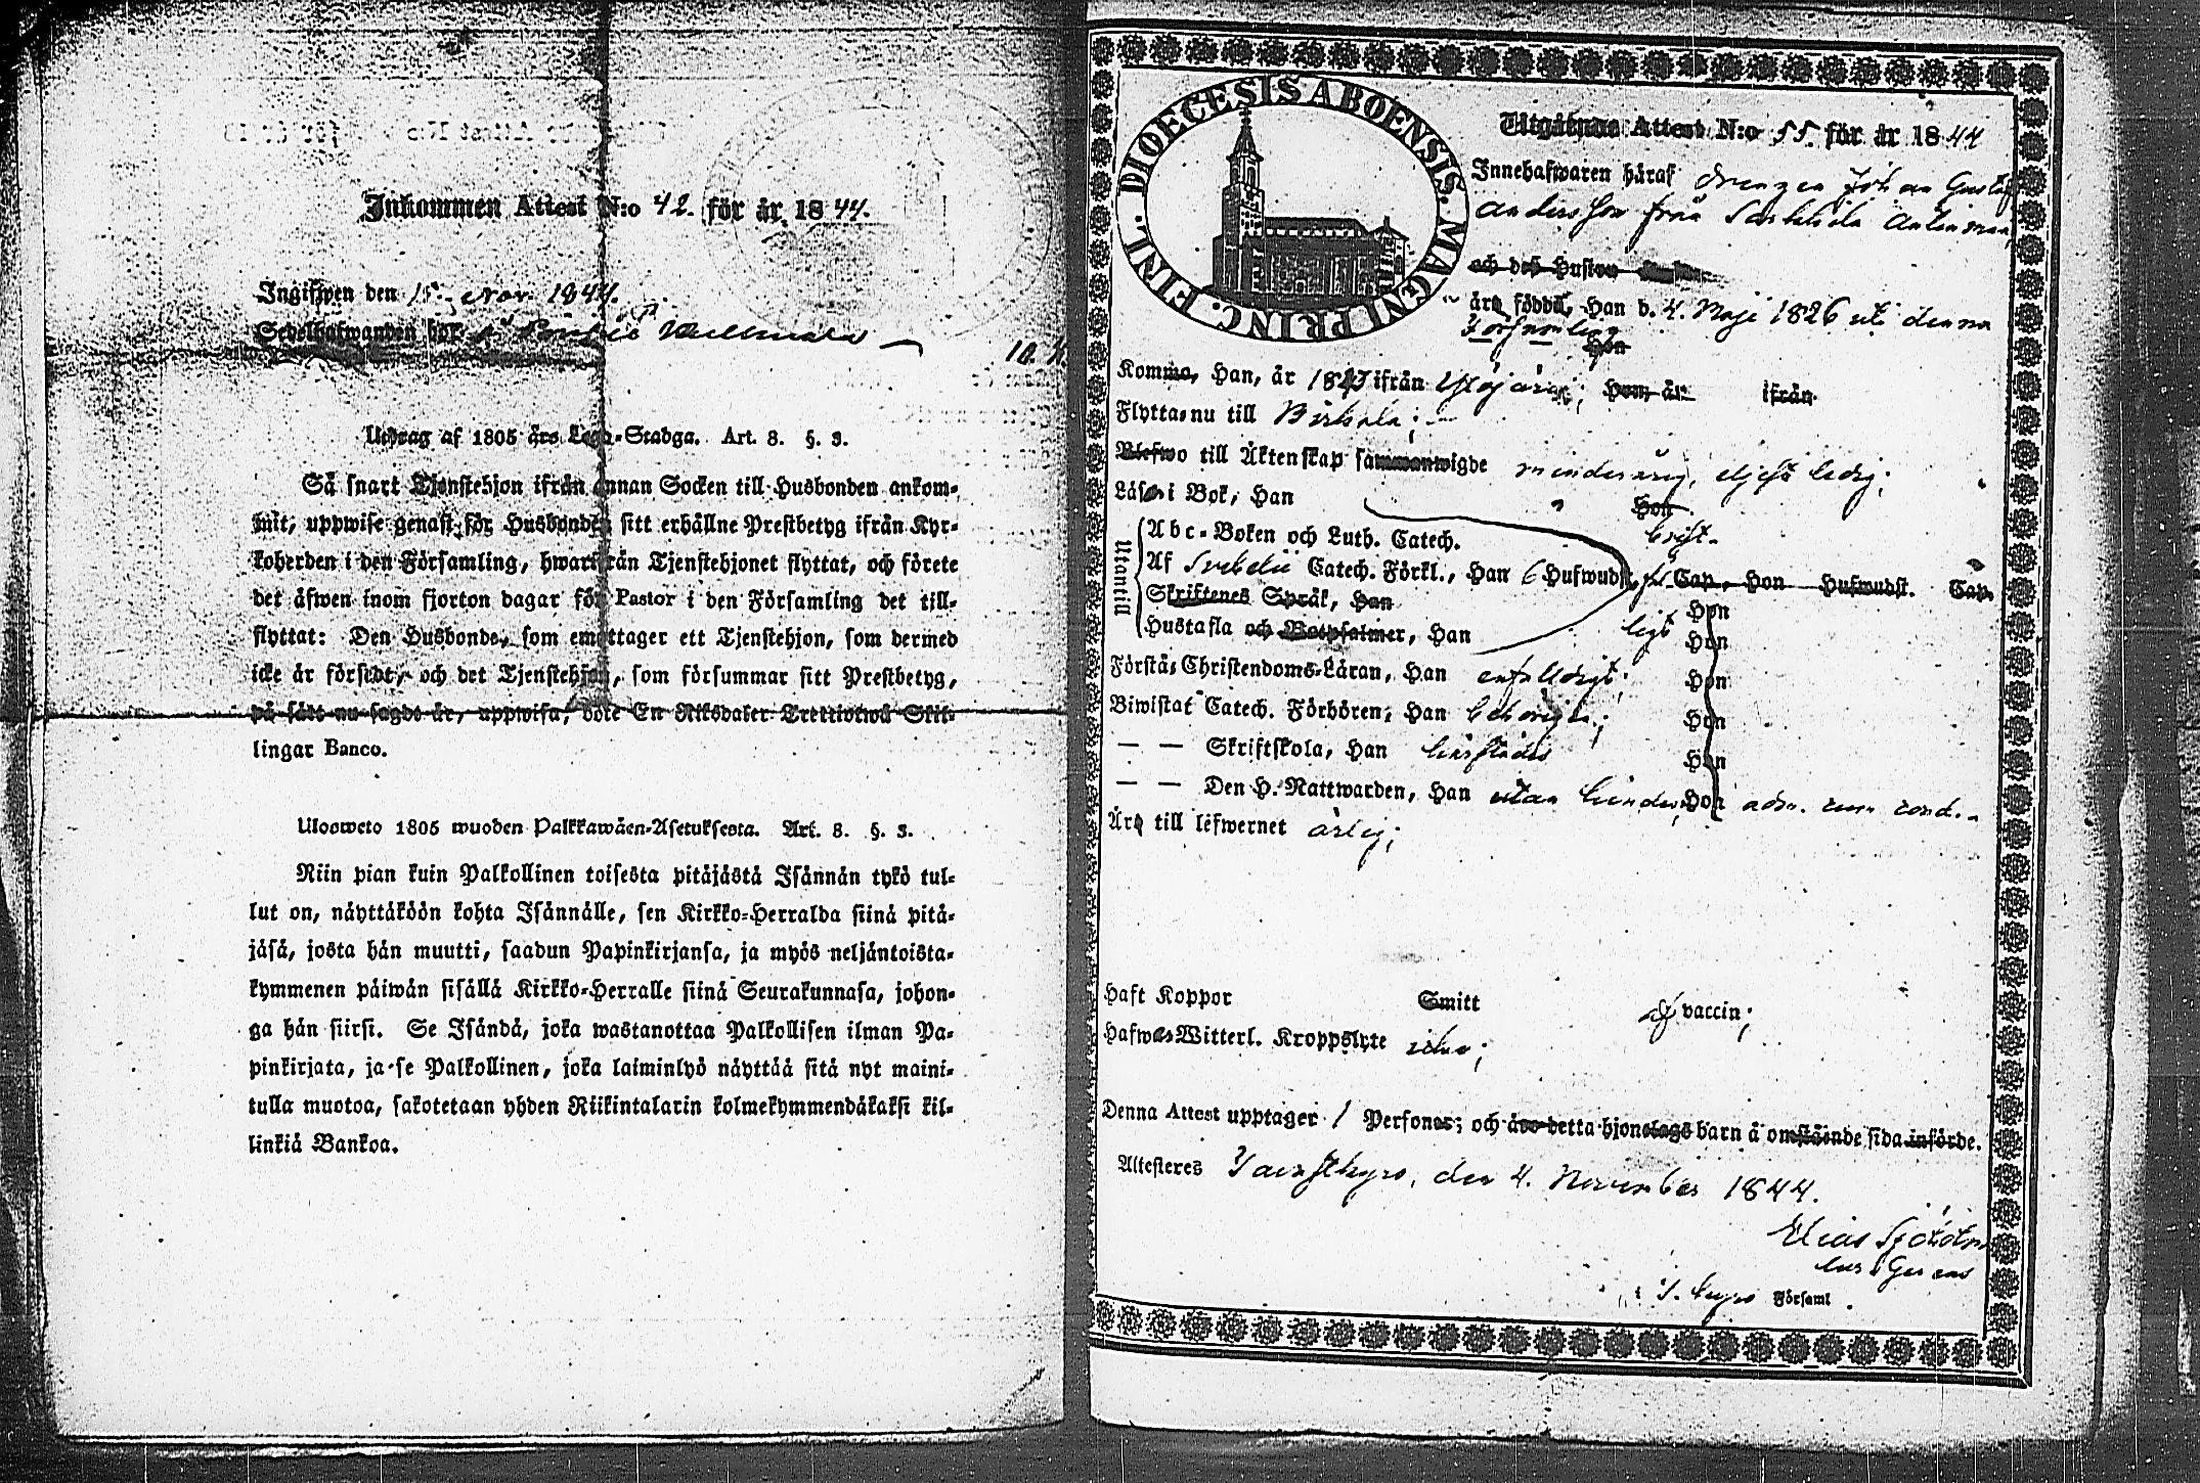 Inkommen Attest N:o 42. för år 1844.
Ingifwen den 15. Nov. 1844.
Sedelhafwanden bor
10.
Utdrag af 1805 års Lego-Stadga. Art. 8. §. 3.
Så snart Tjenstehjon ifrån annan Socken till Husbonden ankom-
mit, uppwise genast för Husbonden sitt erhållne Prestbetyg ifrån Kyr-
koherden i den Församling, hwarifrån Tjenstehjonet flyttat, och förete
det äfwen inom fjorton dagar för Pastor i den Församling det till-
flyttat: Den Husbonde, som emottager ett Tjenstehjon, som dermed
icke är försedt, och det Tjenstehjon, som försummar sitt Prestbetyg,
på sätt nu sagdt är, uppwisa, böte En Riksdaler Trettiotwå Skil-
lingar Banco.
Uloosweto 1805 wuoden Palkkawäen-Asetuksesta. Art. 8. §. 3.
Niin pian kuin Palkollinen toisesta pitäjästä Isännän tykö tul-
lut on, näyttäköön kohta Isännälle, sen Kirkko-Herralda siinä pitä-
jäsä, josta hän muutti, saadun Papinkirjansa, ja myös neljäntoista-
kymmenen päiwän sisällä Kirkko-Herralle siinä Seurakunnasa, johon-
ga hän siirsi. Se Isändä, joka wastanottaa Palkollisen ilman Pa-
pinkirjata, ja se Palkollinen, joka laiminlyö näyttää sitä nyt maini-
tulla muotoa, sakotetaan yhden Riikintalarin kolmekymmendäkaksi kil-
linkiä Bankoa.
DIOECESIS ABOENSIS. MAGNI PRINC. FINL.
Utgående Attest N:o 55. för år 1844
Innehafwaren häraf drengen Johan Gustaf
Andersson från
och des Hustru
äro födda, Han d. 4. Maji 1826 uti denna
Församling
Hon
Komne, Han, år ifrån Ylöjärvi; Hon, år ifrån
Flytta nu till Birkala;
Blefwo till Äktenskap sammanwigde minderårig, eljest ledig;
Läser i Bok, Han Hon
Abc-Boken och Luth. Catech. brist-
Utantill
Af Svebelii Catech. Förkl., Han 6 Hufwudst. Cap., Hon Hufwudst. Cap.
Skriftenes Språk, Han Hon
Hustafla och Botpsalmer, Han ligt Hon
Förstår Christendoms-Läran, Han enfaldigt; Hon
Biwistat Catech. Förhören, Han behörigen; Hon
— — Skriftskola, Han härstädes Hon
— — Den H. Nattwarden, Han utan hinder, Hon adm. cum cond.
Äro till lefwernet ärlig;
Haft Koppor Smitt af vaccin;
Hafwa Witterl. Kroppslyte icke;
Denna Attest upptager 1 Personer; och äro detta hjonelags barn å omstående sida införde.
Attesteres Tavastkyro, den 4. November 1844.
Elias
T. kyro Församl